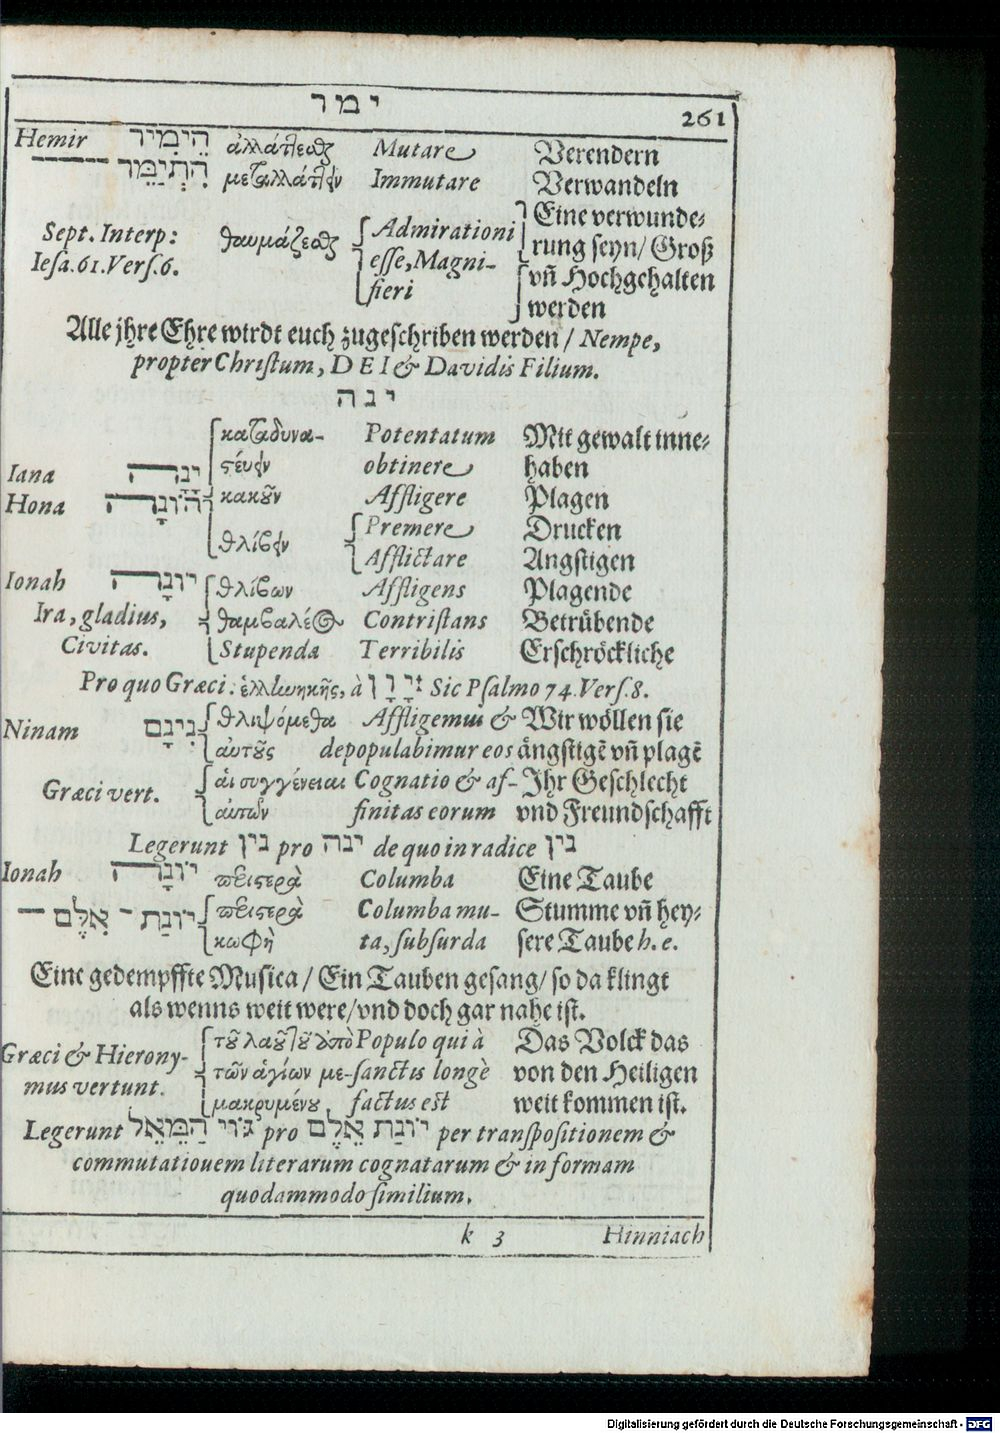 ימר
261
Hemir הֵימִיר ἀλλάττεσθαι Mutare Verendern
הִתְיַמֵּר μεταλλάττειν Immutare Verwandeln
Sept. Interp: Iesa. 61. Vers. 6. θαυμάζεσθαι Admirationi Eine verwunde-
esse, Magni- rung seyn/ Groß
fieri vn̄ Hochgehalten
werden
Alle jhre Ehre wirdt euch zugeschriben werden / Nempe,
propter Christum, DEI & Davidis Filium.
ינה
καταδυνα- Potentatum Mit gewalt inne-
Iana יָנָה στεύειν obtinere haben
Hona הוֹנָה κακοῦν Affligere Plagen
Premere Drucken
θλίβειν Afflictare Angstigen
Ionah יוֹנָה θλίβων Affligens Plagende
Ira, gladius, Contristans Betrübende
Civitas. Stupenda Terribilis Erschröckliche
Pro quo Græci: à יָוָן: Sic Psalmo 74. Vers. 8.
Ninam נִינָם θλιψόμεθα Affligemus & Wir wöllen sie
αὐτοὺς depopulabimur eos ängstigē vn̄ plagē
Græci vert. αἱ συγγένειαι Cognatio & af- Jhr Geschlecht
αὐτῶν finitas eorum vnd Freundschafft
Legerunt נין pro ינה de quo in radice נין
Ionah יוֹנָה περιστερὰ Columba Eine Taube
יוֹנַת־אֵלֶם περιστερὰ Columba mu- Stumme vn̄ hey-
κωφὴ ta, subsurda sere Taube h. e.
Eine gedempffte Musica / Ein Tauben gesang/ so da klingt
als wenns weit were/vnd doch gar nahe ist.
Græci & Hierony- τοῦ λαοῦ τοῦ ἀπὸ Populo qui à Das Volck das
mus vertunt. τῶν ἁγίων με- sanctis longè von den Heiligen
μακρυμένου. factus est weit kommen ist.
Legerunt גּוֹי pro יוֹנַת אֵלֶם per transpositionem &
commutatiouem literarum cognatarum & in formam
quodammodo similium.
k 3 Hinniach
Digitalisierung gefördert durch die Deutsche Forschungsgemeinschaft - DFG